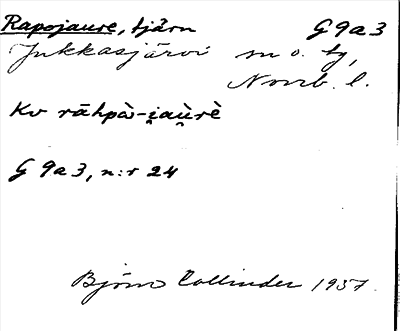 Rapojaure, tjärn G 9 a 3
Jukkasjärvi m o. tg,
Norrb. l.
Kv rāhpȧ̀-i̯au̯rè
G 9 a 3, n:r 24
Björn Collinder 1957.